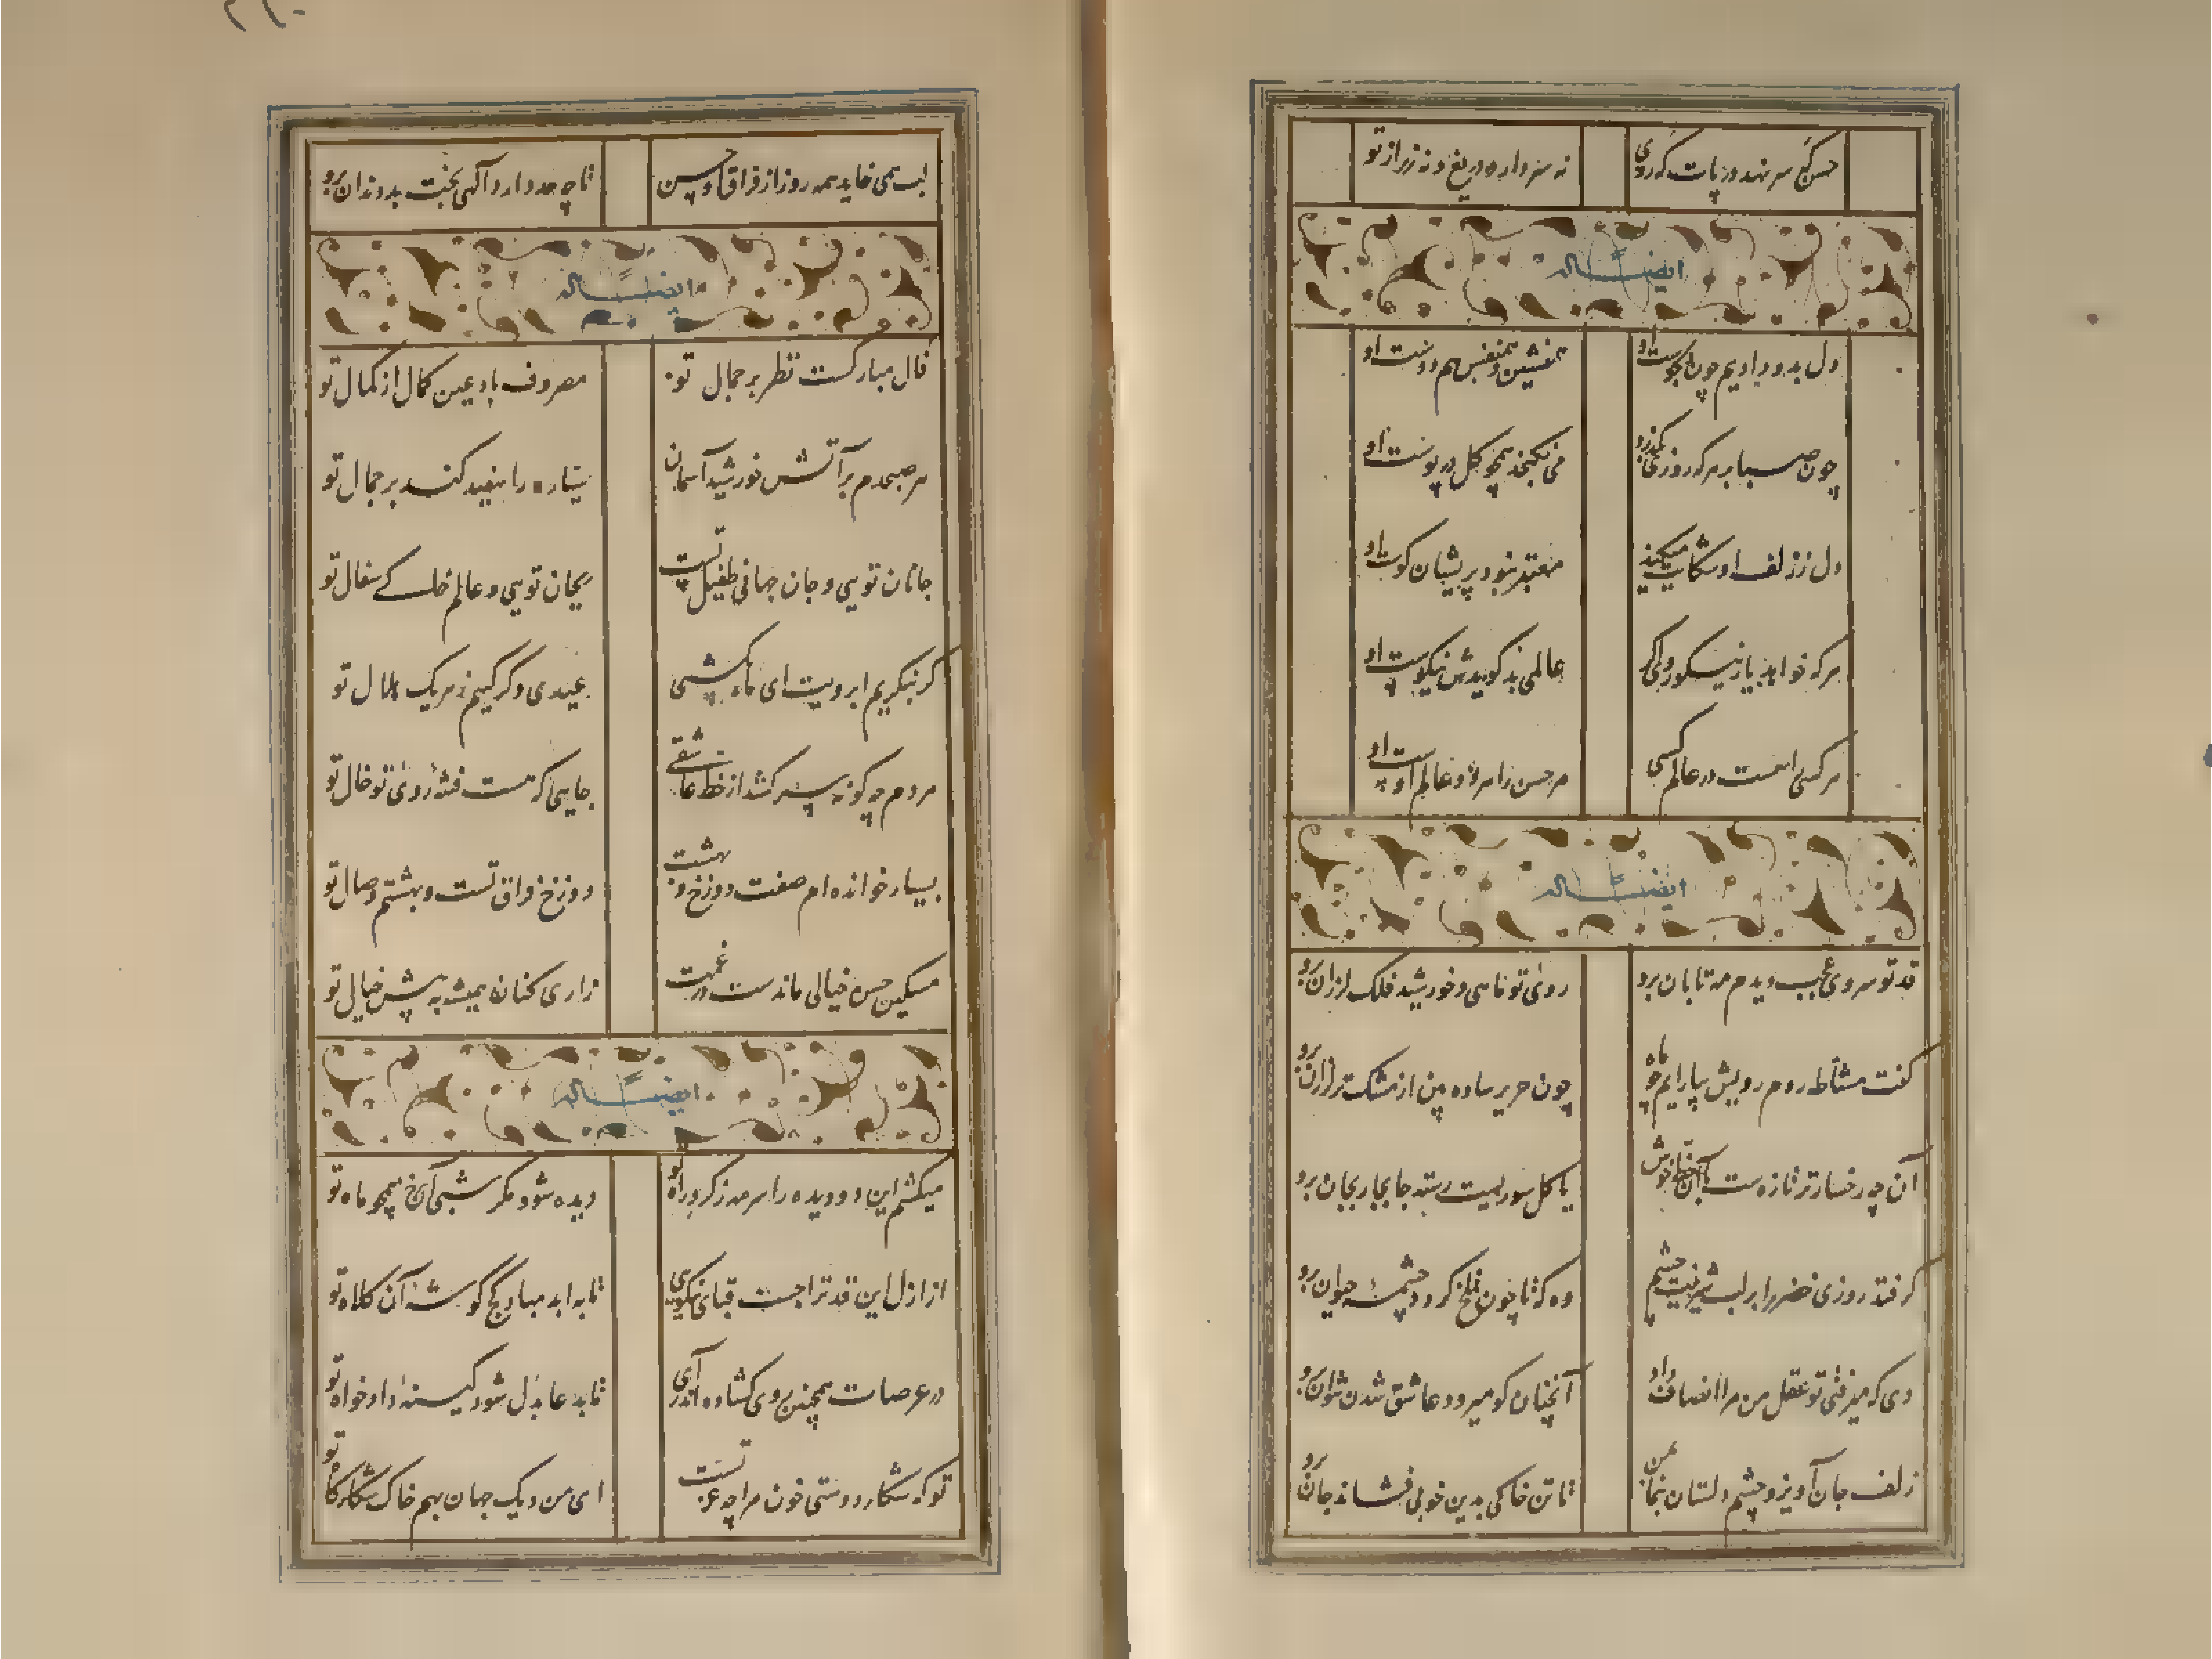 حسن سر نهد در پات که روی
نه سر دارد دریغ و نه زر از تو
ایضاً له
دل بدو دادیم چون دلجوست او
همنشین و همنفس هم دوست او
چون صبا بر هر که روزی بگذرد
می‌نگنجد همچو گل در پوست او
دل ز زلف او شکایت میکند
معتبر نبود پریشان گوست او
هر که خواهد یار نیکو روی
عالمی بد گویدش نیکوست او
هر کسی را هست در عالم کسی
مر حسن را هر دو عالم اوست او
ایضاً له
قد تو سروی عجب دیدم مه تابان برو
روی تو ماهی و خورشید فلک لرزان برو
گفت مشاطه روم رویش بیارایم چو ماه
چون حریر ساده بین از مشک تر برو
آن چه رخسار تر تازه ست خوش
یا گل سوریست رسته جابجا ریحان برو
گرفتد روزی خضر را بر لب شیرینت چشم
وه که تا چون تلخ گردد چشمهٔ حیوان برو
دی که میرفتی تو عقل من مرا انصاف داد
آنچنان کو میرود عاشق شدن بتوان برو
زلف جان آویز و چشم دلستان بنما بمن
تا تن خاکی بدین خوبی فشاند جان برو
لب همی خاید همه روز از فراق او حسن
تا چه دارد آگهی بخت بد دندان برو
ایضاً له
فال مبارکست نظر بر جمال تو
مصروف باد عین کمال از کمال تو
هر صبحدم بر آتش خورشید آسمان
سیاره را سپند کند بر جمال تو
جانان تویی و جان جهانی طفیل تست
ریحان تویی و عالم خاکی سفال تو
گر بنگریم ابرویت ای ماه یکشبی
عیدی دگر کنیم ز هر یک هلال تو
مردم چگونه سر کشد از خط عاشقی
جایی که هست فتنهٔ روی تو خال تو
بسیار خوانده‌ام صفت دوزخ و بهشت
دوزخ فراق تست و بهشتم وصال تو
مسکین حسن خیالی ماندست در غمت
زاری کنان همیشه به پیش خیال تو
ایضاً له
میکشم این دو دیده را سرمه ز گرد راه تو
دیده شود مگر شبی آن رخ همچو ماه تو
از ازل این قد ترا جست قبای نیکویی
تا به ابد مباد کج گوشهٔ آن کلاه تو
در عرصات همچنین روی گشاده اندر آی
تا بد عا بدل شود کینه داد خواه تو
تو که شکار دوستی خون مرا چه تست
ای من و یک جهان بهم خاک شکارگاه تو